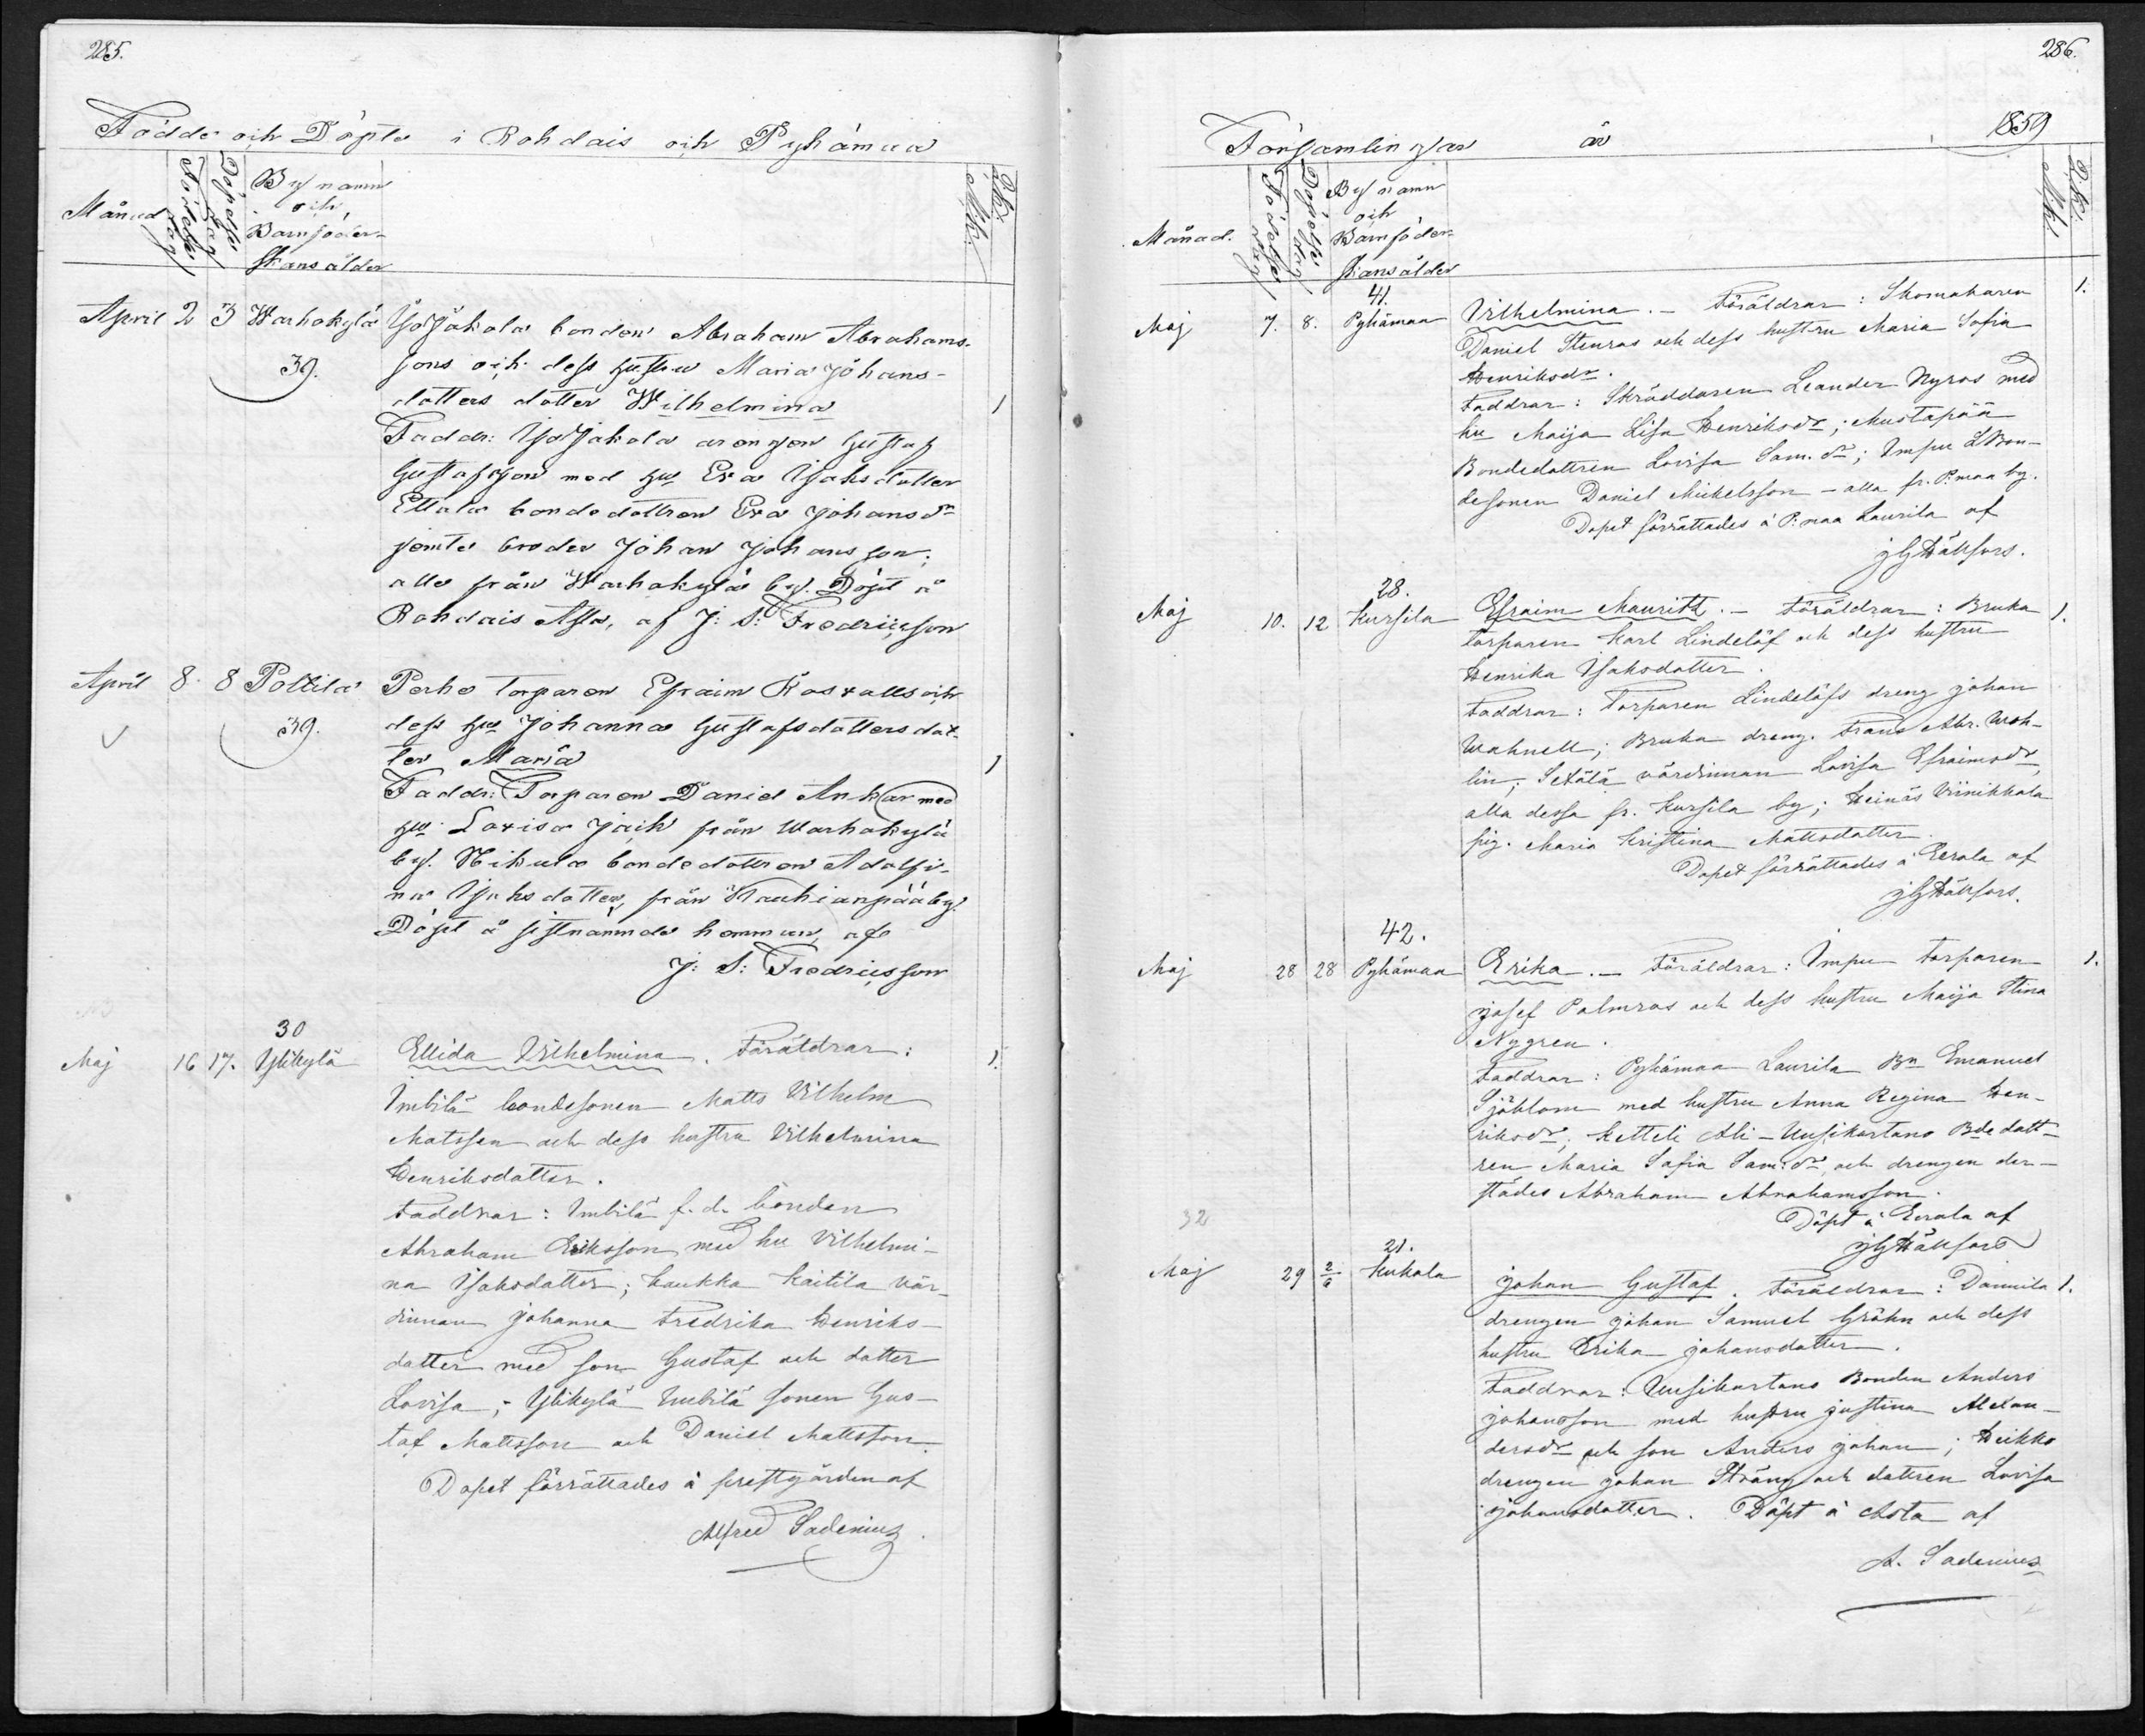 285.
Födde och Döpte i Rohdais och Pyhämaa
Månad
Födelse dag
Döpelse dag
By namn
och
Barnföder-
skans ålder
Qk.
Mk.
April 2 3 Warhokylä Yo Jakola bonden Abraham Abrahams-
39.
sons och dess hustru Maria Johans-
dotters dotter Wilhelmina 1
Faddr: Yo Jakola drengen Gustaf
Gustafsson med hu Eva Isaksdotter
Ettala bondedottren Eva Johansdr
jemte broder Johan Johansson;
alle från Warhokylä by. Döpt å
Rohdais Asta, af J: S: Fredricsson
April 8. 8 Poltila Perho torparen Efraim Rosvalls och
39.
dess hu Johanna Gustafsdotters dot-
ter Maria 1
Faddr: Torparen Daniel Ankar med
hu Lovisa Jaik från Warhokylä
by. Nikula bondedottren Adolfi-
na Isaksdotter, från Kauhianpää by.
Döpt å sistnämnde hemman, af
J: S: Fredricsson
30
Maj 16 17. Ylikylä Ellida Vilhelmina. Föräldrar: 1.
Imbilä bondesonen Matts Vilhelm
Matsson och dess hustru Vilhelmina
Henriksdotter.
Faddrar: Imbilä f. d. bonden
Abraham Eriksson med hu Vilhelmi-
na Isaksdotter; Kaukka Kaitila vär-
dinnan Johanna Fredrika Henriks-
dotter med son Gustaf och dotter
Lovisa; Ylikylä Imbilä sonen Gus-
taf Mattsson och Daniel Mattsson.
Dopet förrättades å prestgården af
Alfred Sadenius.
286.
Församlingar år 1859
Månad.
Födelse dag
Döpelse dag
By namn
och
Barnföder-
skans ålder
Qk.
Mk.
41.
Maj 7. 8. Pyhämaa Vilhelmina. - Föräldrar: Skomakaren 1.
Daniel Stenros och dess hustru Maria Sofia
Henriksdr.
Faddrar: Skräddaren Leander Nyros med
hu Maija Lisa Henriksdr; Mustapää
Bondedottren Lovisa Sam. dr; Impu Bon-
desonen Daniel Mickelsson - alla fr. P:maa by.
Dopet förrättades å P:maa Laurila af
J G Hällfors.
28.
Maj 10. 12 Kursila Efraim Mauritz. - Föräldrar: Bruka 1.
torparen Karl Lindelöf och dess hustru
Henrika Isaksdotter.
Faddrar: Torparen Lindelöfs dreng Johan
Wahnell; Bruka dreng. Frans Abr. Wah-
lin; Setälä värdinnan Lovisa Efraimsdr,
alla dessa fr. Kursila by; Heinäs Viinikkala
pig. Maria Kristina Mattsdotter.
Dopet förrättades å Eerola af
J G Hällfors.
42.
Maj 28 28 Pyhämaa Erika. - Föräldrar: Impu torparen 1.
Josef Palmros och dess hustru Maija Stina
Nygren.
Faddrar: Pyhämaa Laurila Bn Emanuel
Sjöblom med hustru Anna Regina Hen-
riksdr; Ketteli Ali-Uusikartano Bdedott-
ren Maria Sofia Sam: dr och drengen der-
städes Abraham Abrahamsson.
Döpt å Eerola af
J G Hällfors
32
21.
Maj 29 2/6 Kukola Johan Gustaf. Föräldrar: Dannila 1.
drengen Johan Samuel Gröhn och dess
hustru Erika Johansdotter.
Faddrar: Uusikartano Bonden Anders
Johansson med hustru Justina Alexan-
dersdr och son Anders Johan; Heikko
drengen Johan Sträng och dottren Lovisa
Johansdotter. Döpt å Asta af
A. Sadenius